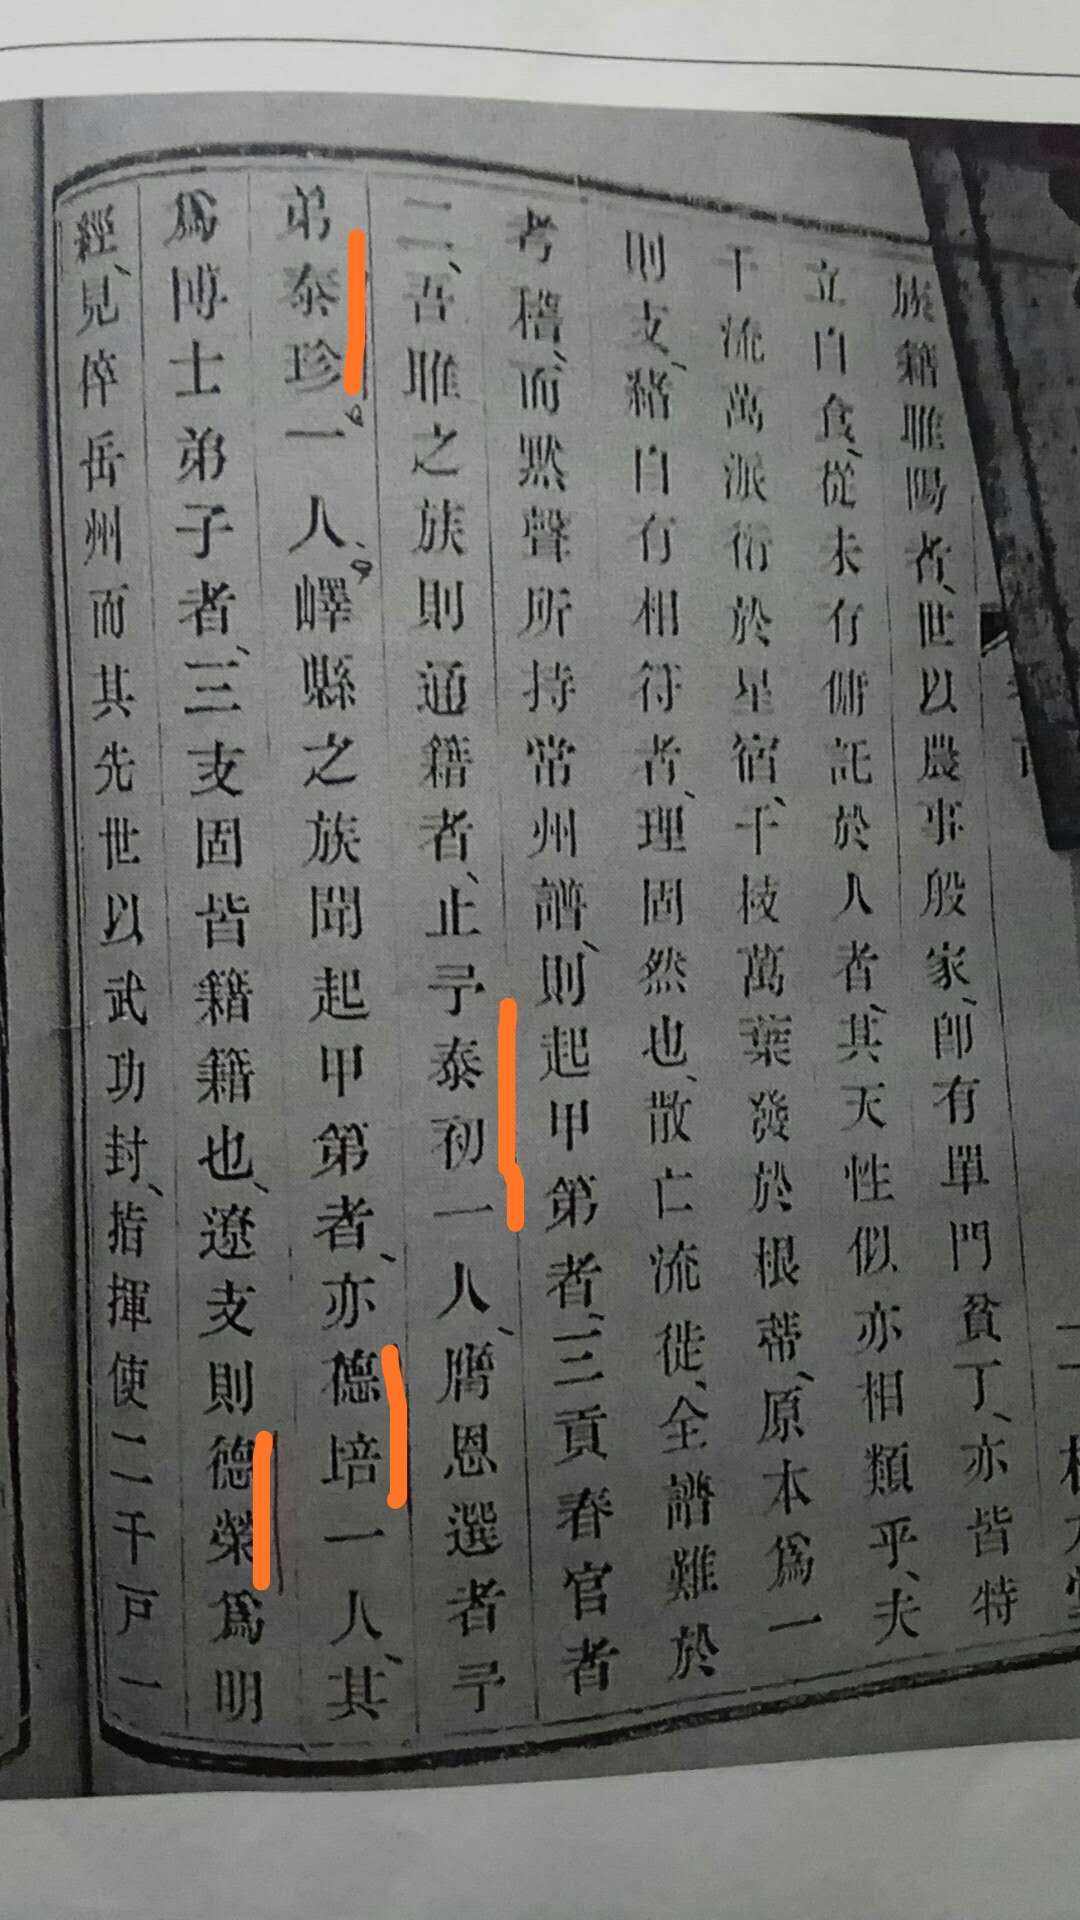 族籍睢陽者、世以農事殷家、卽有單門貧丁、亦皆特
立自食、從未有傭託於人者、其天性似亦相類乎、夫
千流萬派衍於星宿、千枝萬葉發於根蒂、原本爲一
則支、緒自有相符者、理固然也、散亡流徙、全譜難於
考稽、而默聲所持常州譜、則起甲第者、三貢春官者
二、吾睢之族則通籍者、止予泰初一人、膺恩選者予
弟泰珍一人、嶧縣之族聞起甲第者、亦德培一人、其
爲博士弟子者、三支固皆籍籍也、遼支則德榮爲明
經、見倅岳州而其先世以武功封、指揮使二千戸一